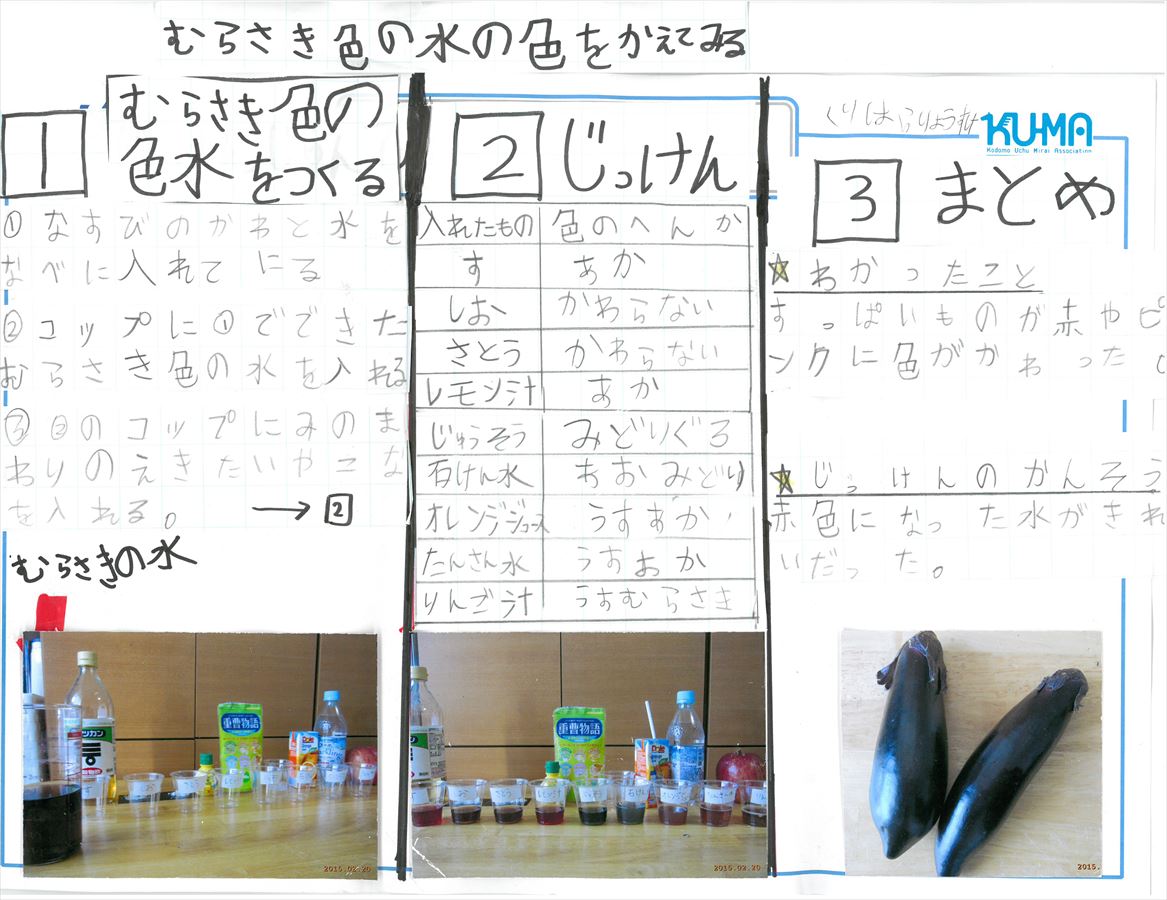 むらさき色の水の色をかえてみる
1
むらさき色の
色水をつくる
①なすびのかわと水を
なべに入れて にる
②コップに①でできた
むらさき色の水を入れる
③②のコップにみのま
わりのえきたいやこな
を入れる。
→2
むらさきの水
2 じっけん
入れたもの 色のへんか
す あか
しお かわらない
さとう かわらない
レモン汁 あか
じゅうそう みどりぐろ
石けん水 あおみどり
オレンジジュース うすあか
たんさん水 うすあか
りんご汁 うすむらさき
くりはらりょうすけ
KU-MA
Kodomo Uchu Mirai Association
3 まとめ
☆わかったこと
すっぱいものが赤やピ
ンクに色がかわった。
☆じっけんのかんそう
赤色になった水がきれ
いだった。
ミツカン
酢
重曹物語
しお
さとう
石けん
2015.02.20
2015.02.20
2015.